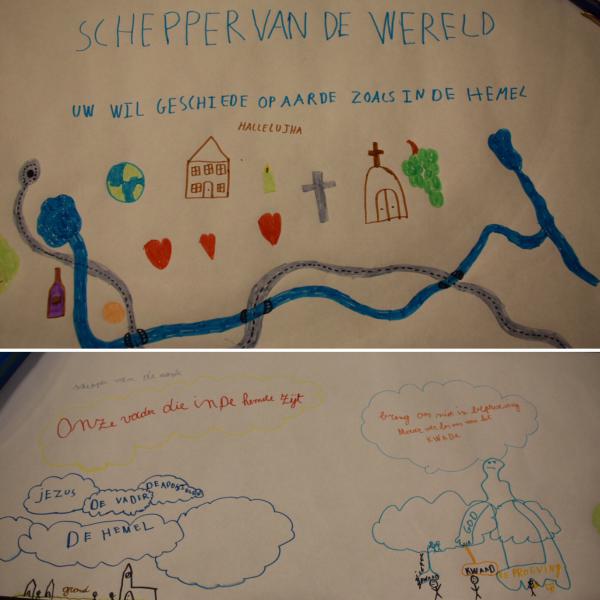 SCHEPPER VAN DE WERELD
UW WIL GESCHIEDE OP AARDE ZOALS IN DE HEMEL
HALLELUJHA
schepper van de
Onze vader die in De hemele zijt
breng ons niet in beproeving
Maar verlos ons van het
KWADE
JEZUS
DE VADER
DE APOSTELEN
DE HEMEL
grond
GOD
KWAAD
BEPROEVING